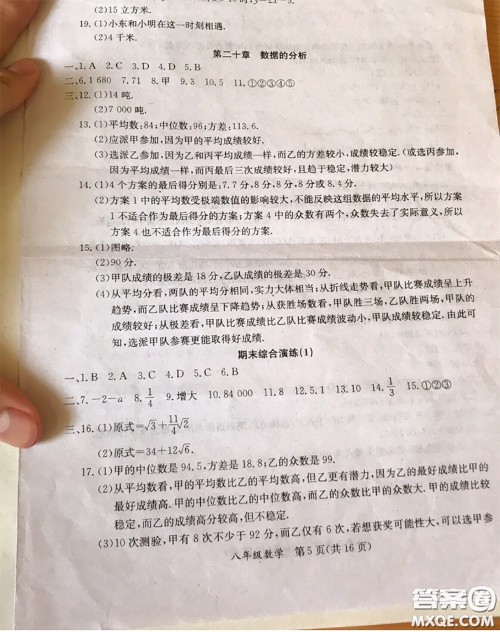 (2)15立方米.
19.(1)小东和小明在这一时刻相遇.
(2)4千米.
第二十章 数据的分析
一、1.A 2.C 3.D 4.D 5.B
二、6.1 680 7.71 8.甲 9.3 10.5 11.①②③④⑤
三、12.(1)14吨.
(2)7 000吨.
13.(1)平均数:84;中位数:96;方差:113.6.
(2)应派甲参加,因为甲的平均成绩较好.
(3)选派乙参加,因为乙和丙平均成绩一样,而乙的方差较小,成绩较稳定.(或选丙参加,
因为平均成绩一样,而丙最后三次成绩较好,且趋于稳定,潜力较大)
14.(1)4个方案的最后得分分别是:7.7分,8分,8分,8分或8.4分.
(2)方案1中的平均数受极端数值的影响较大,不能反映这组数据的平均水平,所以方案
1不适合作为最后得分的方案;方案4中的众数有两个,众数失去了实际意义,所以
方案4也不适合作为最后得分的方案.
15.(1)图略.
(2)90分.
(3)甲队成绩的极差是18分,乙队成绩的极差是30分.
(4)从平均分看,两队的平均分相同,实力大体相当;从折线走势看,甲队比赛成绩呈上升
趋势,而乙队比赛成绩呈下降趋势;从获胜场数看,甲队胜三场,乙队胜两场,甲队的
成绩较好;从极差看,甲队比赛成绩比乙队比赛成绩波动小,甲队成绩较稳定.综上可
知,选派甲队参赛更能取得好成绩.
期末综合演练(1)
一、1.B 2.A 3.D 4.C 5.C 6.B
二、7.-2-a 8.1/4 9.增大 10.84 000 11.2 12.5 13.10 14.1/3 15.①②③
三、16.(1)原式=√3+11/4√2
(2)原式=34+12√6.
17.(1)甲的中位数是94.5,方差是18.8;乙的众数是99.
(2)从平均数看,甲的平均数比乙的平均数高,但乙更有潜力,因为乙的最好成绩比甲的
最好成绩高.甲的中位数比乙的中位数大,但乙的众数比甲的众数大.甲的成绩比较
稳定,而乙的成绩高分较高,但不稳定.
(3)10次测验,甲有8次不少于92分,而乙仅有6次,若想获奖可能性大,可以选甲参
八年级数学 第5页(共16页)
答案圈
MXQE.COM